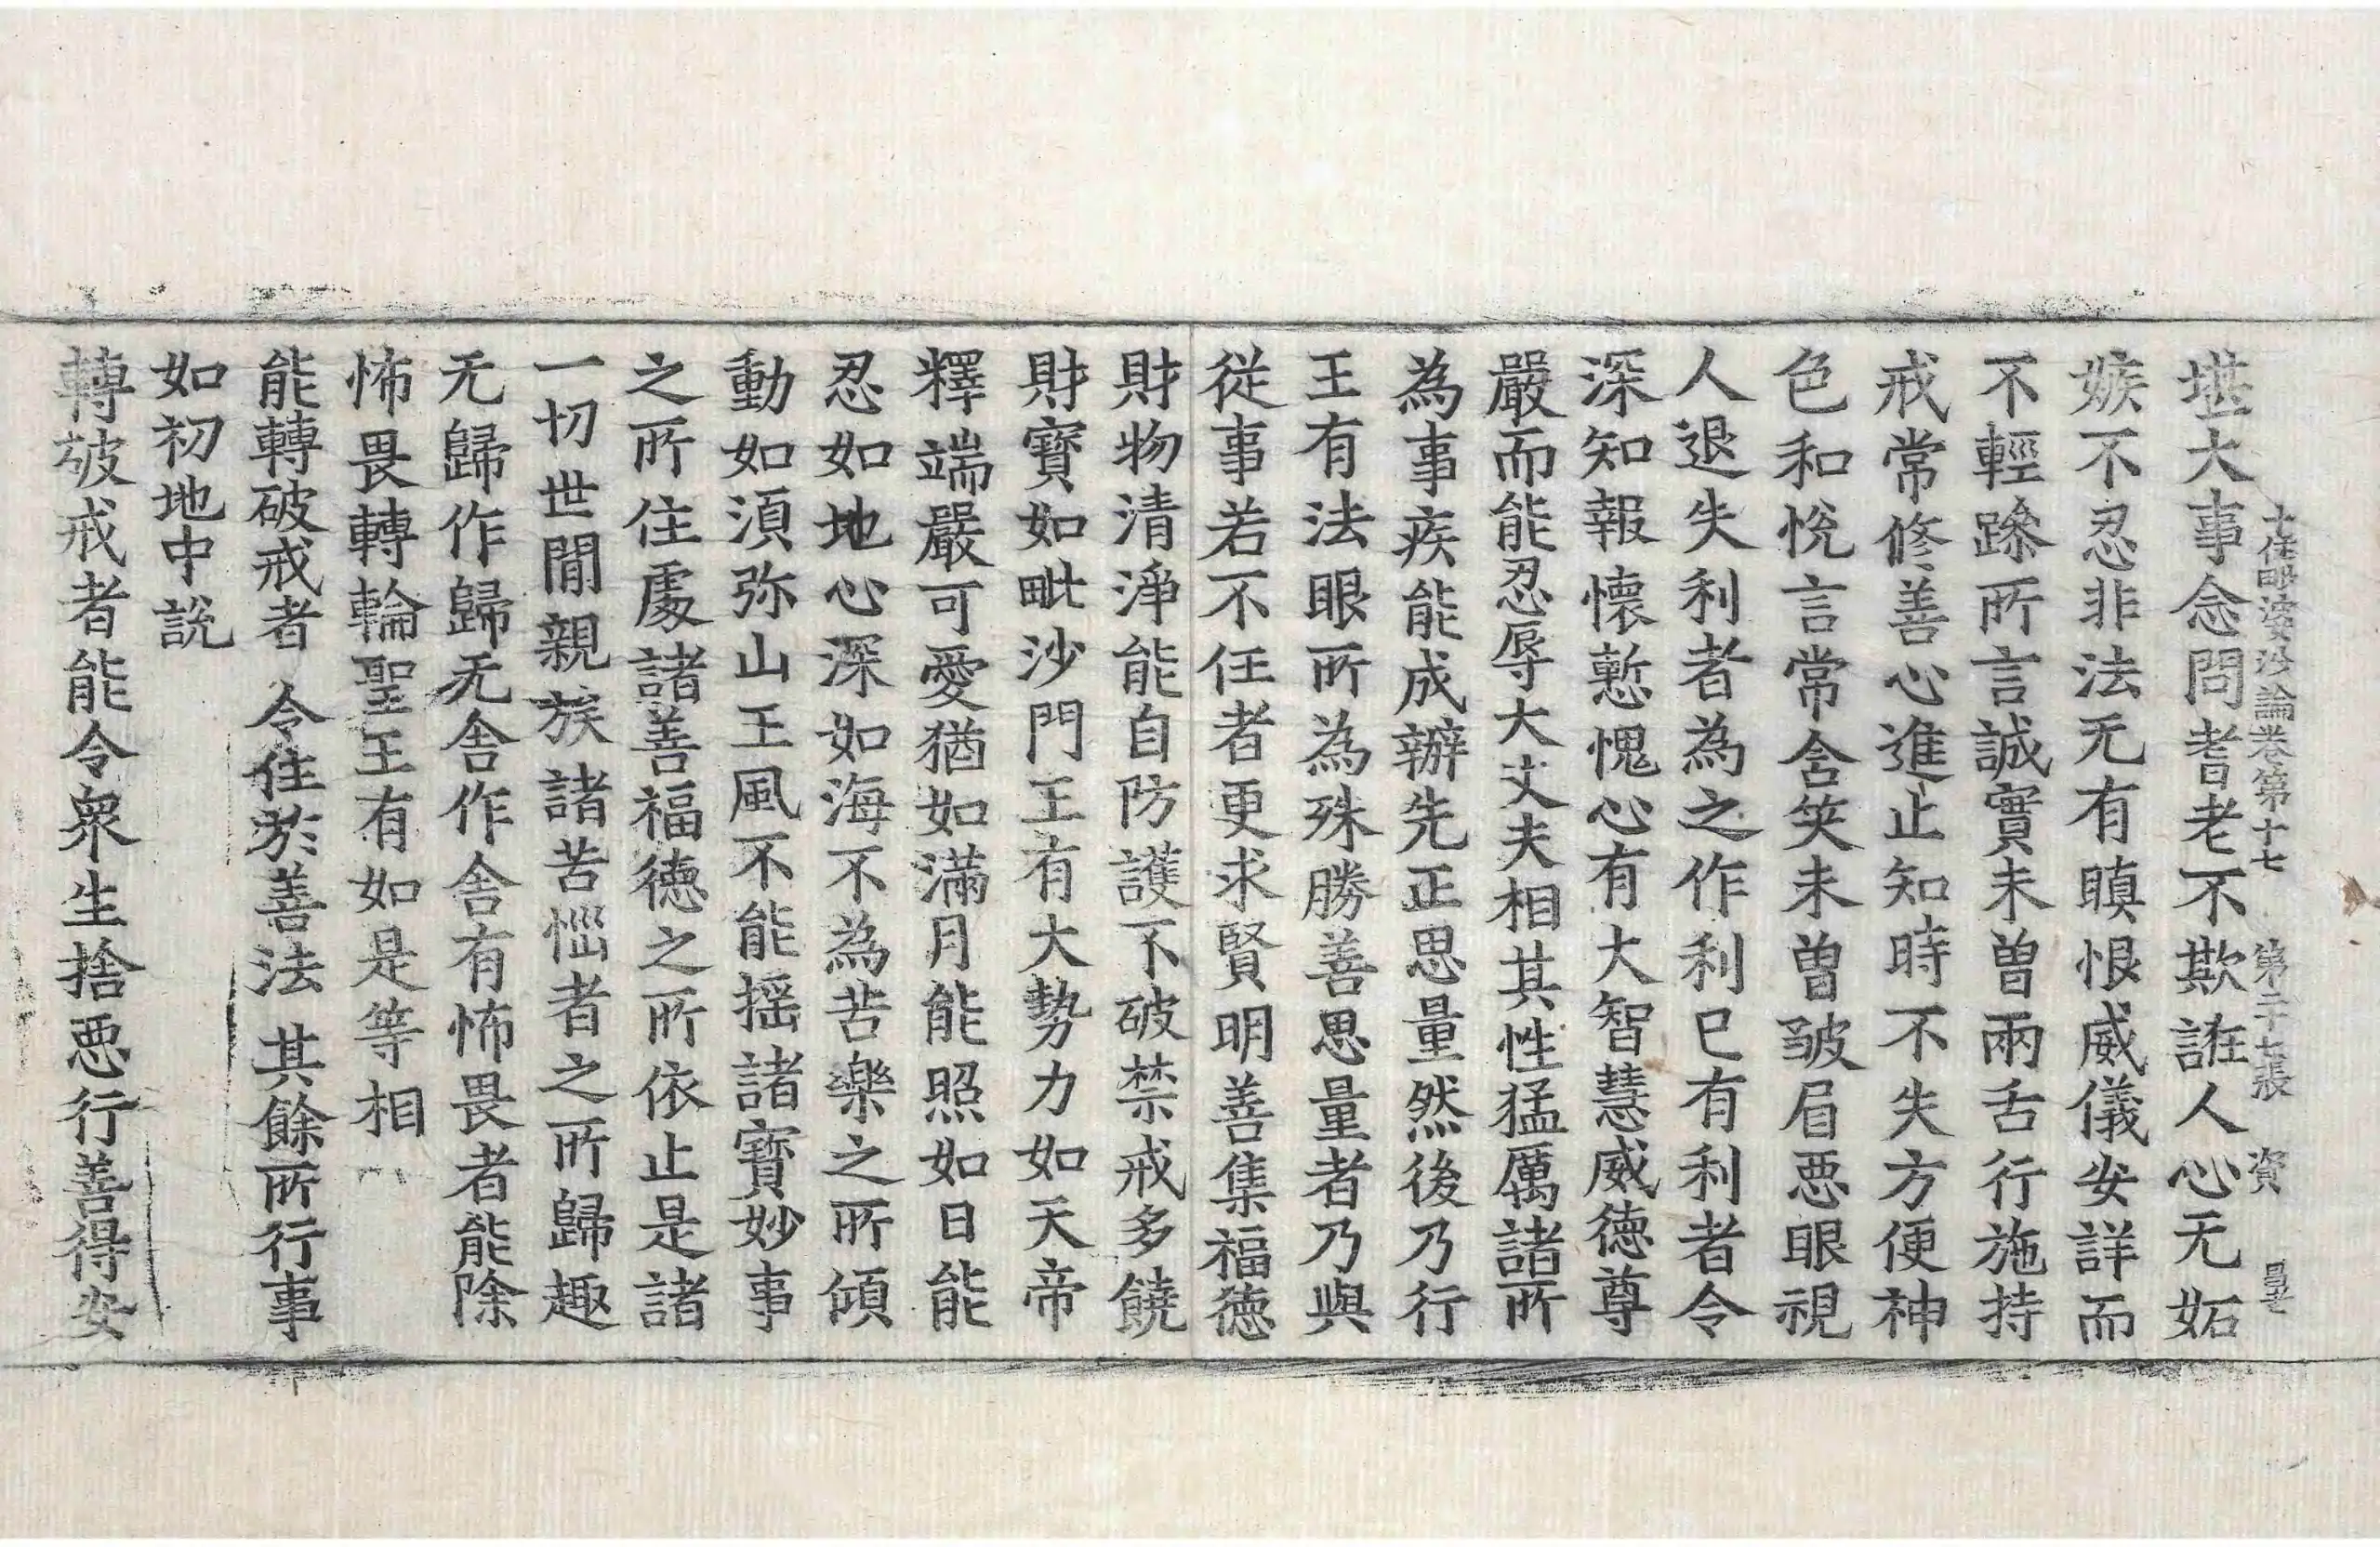 十住毗婆沙論卷第十七　第二十七張　資
堪大事念問耆老不欺誑人心无妬
嫉不忍非法无有瞋恨威儀安詳而
不輕躁所言誠實未曾兩舌行施持
戒常修善心進止知時不失方便神
色和悅言常含笑未曾皺眉惡眼視
人退失利者為之作利已有利者令
深知報懷慙愧心有大智慧威德尊
嚴而能忍辱大丈夫相其性猛厲諸所
為事疾能成辦先正思量然後乃行
王有法眼所為殊勝善思量者乃與
從事若不任者更求賢明善集福德
財物清淨能自防護不破禁戒多饒
財寶如毗沙門王有大勢力如天帝
釋端嚴可愛猶如滿月能照如日能
忍如地心深如海不為苦樂之所傾
動如須弥山王風不能搖諸寶妙事
之所住處諸善福德之所依止是諸
一切世間親族諸苦惱者之所歸趣
无歸作歸无舍作舍有怖畏者能除
怖畏轉輪聖王有如是等相
能轉破戒者　令住於善法　其餘所行事
如初地中說
轉破戒者能令衆生捨惡行善得安